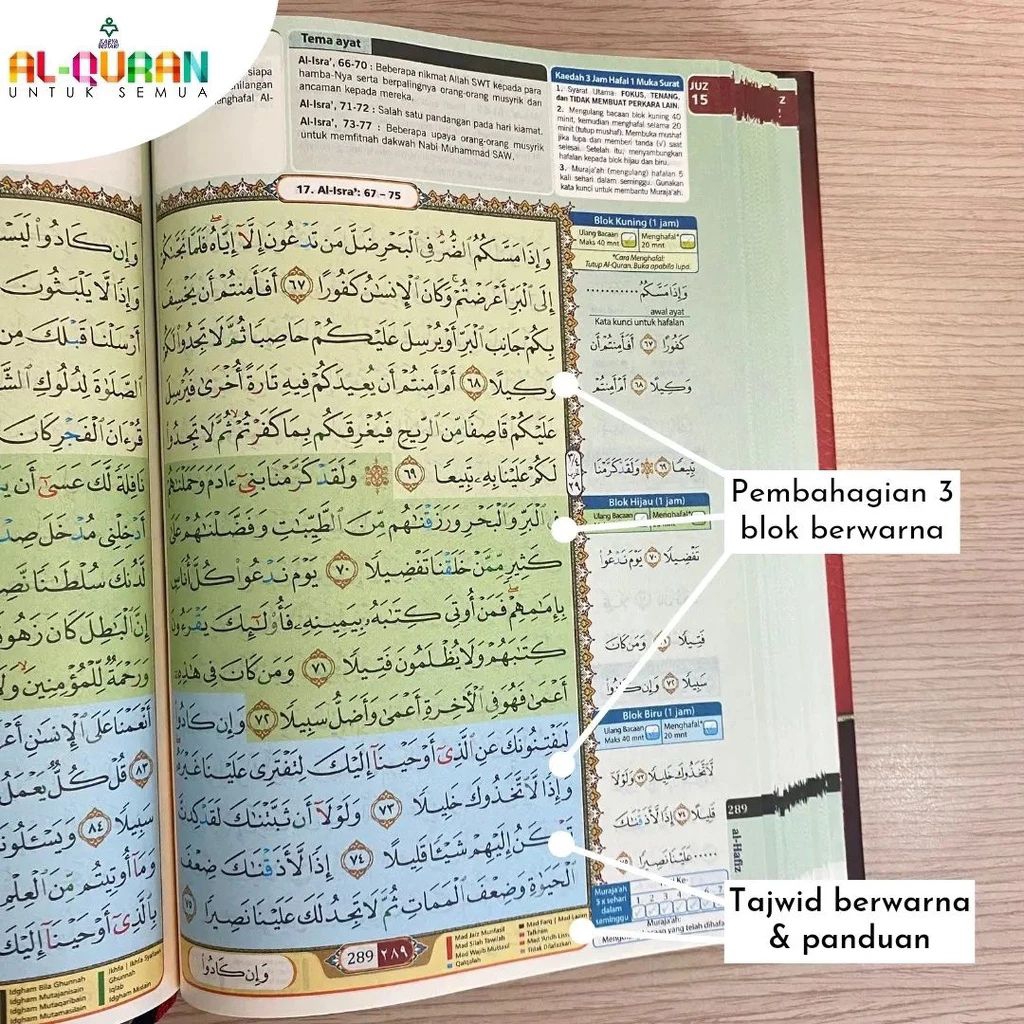 KARYA BESTARI
AL-QURAN
UNTUK SEMUA
siapa
hilangan
nghafal Al-
Tema ayat
Al-Isra', 66-70 : Beberapa nikmat Allah SWT kepada para
hamba-Nya serta berpalingnya orang-orang musyrik dan
ancaman kepada mereka.
Al-Isra', 71-72 : Salah satu pandangan pada hari kiamat.
Al-Isra', 73-77 : Beberapa upaya orang-orang musyrik
untuk memfitnah dakwah Nabi Muhammad SAW.
Kaedah 3 Jam Hafal 1 Muka Surat
1. Syarat Utama: FOKUS, TENANG,
dan TIDAK MEMBUAT PERKARA LAIN.
2. Mengulang bacaan blok kuning 40
minit, kemudian menghafal selama 20
minit (tutup mushaf). Membuka mushaf
jika lupa dan memberi tanda (√) saat
selesai. Setelah itu, menyambungkan
hafalan kepada blok hijau dan biru.
3. Muraja'ah (mengulang) hafalan 5
kali sehari dalam seminggu. Gunakan
kata kunci untuk membantu Muraja'ah.
JUZ
15
17. Al-Isra': 67 – 75
وَإِذَا مَسَّكُمُ ٱلضُّرُّ فِي ٱلْبَحْرِ ضَلَّ مَن تَدْعُونَ إِلَّآ إِيَّاهُ فَلَمَّا نَجَّىٰكُمْ
إِلَى ٱلْبَرِّ أَعْرَضْتُمْ وَكَانَ ٱلْإِنسَٰنُ كَفُورًا ٦٧ أَفَأَمِنتُمْ أَن يَخْسِفَ
بِكُمْ جَانِبَ ٱلْبَرِّ أَوْ يُرْسِلَ عَلَيْكُمْ حَاصِبًا ثُمَّ لَا تَجِدُوا۟ لَكُمْ
وَكِيلًا ٦٨ أَمْ أَمِنتُمْ أَن يُعِيدَكُمْ فِيهِ تَارَةً أُخْرَىٰ فَيُرْسِلَ
عَلَيْكُمْ قَاصِفًا مِّنَ ٱلرِّيحِ فَيُغْرِقَكُم بِمَا كَفَرْتُمْ ثُمَّ لَا تَجِدُوا۟
لَكُمْ عَلَيْنَا بِهِۦ تَبِيعًا ٦٩ ۞ وَلَقَدْ كَرَّمْنَا بَنِيٓ ءَادَمَ وَحَمَلْنَٰهُمْ
فِي ٱلْبَرِّ وَٱلْبَحْرِ وَرَزَقْنَٰهُم مِّنَ ٱلطَّيِّبَٰتِ وَفَضَّلْنَٰهُمْ عَلَىٰ
كَثِيرٍ مِّمَّنْ خَلَقْنَا تَفْضِيلًا ٧٠ يَوْمَ نَدْعُوا۟ كُلَّ أُنَاسٍۭ
بِإِمَٰمِهِمْ فَمَنْ أُوتِيَ كِتَٰبَهُۥ بِيَمِينِهِۦ فَأُو۟لَٰٓئِكَ يَقْرَءُونَ
كِتَٰبَهُمْ وَلَا يُظْلَمُونَ فَتِيلًا ٧١ وَمَن كَانَ فِي هَٰذِهِۦٓ
أَعْمَىٰ فَهُوَ فِي ٱلْءَاخِرَةِ أَعْمَىٰ وَأَضَلُّ سَبِيلًا ٧٢ وَإِن كَادُوا۟
لَيَفْتِنُونَكَ عَنِ ٱلَّذِيٓ أَوْحَيْنَآ إِلَيْكَ لِتَفْتَرِيَ عَلَيْنَا غَيْرَهُۥ
وَإِذًا لَّٱتَّخَذُوكَ خَلِيلًا ٧٣ وَلَوْلَآ أَن ثَبَّتْنَٰكَ لَقَدْ كِدتَّ
تَرْكَنُ إِلَيْهِمْ شَيْـًٔا قَلِيلًا ٧٤ إِذًا لَّأَذَقْنَٰكَ ضِعْفَ
ٱلْحَيَوٰةِ وَضِعْفَ ٱلْمَمَاتِ ثُمَّ لَا تَجِدُ لَكَ عَلَيْنَا نَصِيرًا ٧٥
وَإِن كَادُوا۟
289 ٢٨٩
Blok Kuning (1 jam)
Ulang Bacaan
Maks 40 mnt
Menghafal*
20 mnt
*Cara Menghafal:
Tutup Al-Quran. Buka apabila lupa.
وَإِذَا مَسَّكُمُ ..........
awal ayat
Kata kunci untuk hafalan
كَفُورًا ٦٧ أَفَأَمِنتُمْ أَن
وَكِيلًا ٦٨ أَمْ أَمِنتُمْ
تَبِيعًا ٦٩ وَلَقَدْ كَرَّمْنَا
Blok Hijau (1 jam)
Ulang Bacaan
Menghafal*
تَفْضِيلًا ٧٠ يَوْمَ نَدْعُوا۟
فَتِيلًا ٧١ وَمَن كَانَ
سَبِيلًا ٧٢ وَإِن كَادُوا۟
Blok Biru (1 jam)
Ulang Bacaan
Maks 40 mnt
Menghafal*
20 mnt
لَّٱتَّخَذُوكَ خَلِيلًا ٧٣ وَلَوْلَآ
قَلِيلًا ٧٤ إِذًا لَّأَذَقْنَٰكَ
..... عَلَيْنَا نَصِيرًا ٧٥
Muraja'ah
5 x sehari
dalam
seminggu
1 2 3 4 5 6 7
Muraja'ah:
289
al-Hafiz
Pembahagian 3
blok berwarna
Tajwid berwarna
& panduan
Mad Jaiz Munfasil
Mad Silah Tawilah
Mad Wajib Muttasil
Qalqalah
Mad Farq | Mad Lazim
Tafkhim
Tidak Dilafazkan
Idgham Bila Ghunnah
Idgham Mutajanisain
Idgham Mutaqaribain
Idgham Mutamasilain
Ikhfa | Ikhfa Syafawi
Ghunnah
Iqlab